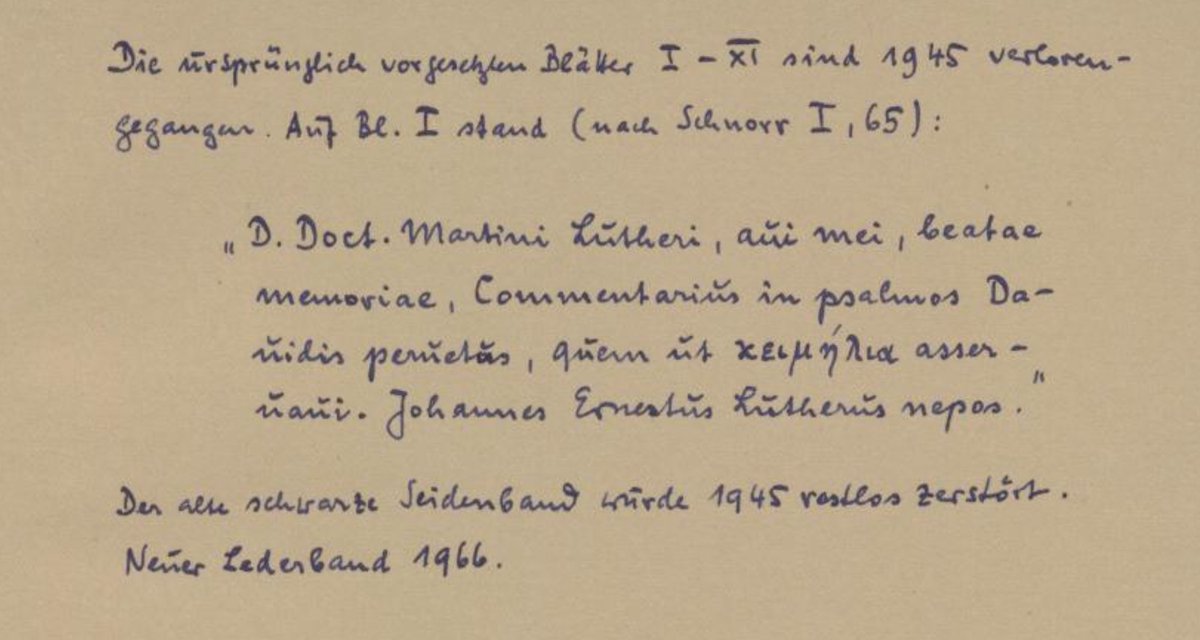 Die ursprünglich vorgesetzten Blätter I – XI sind 1945 verloren-
gegangen. Auf Bl. I stand (nach Schnorr I, 65):
„D. Doct. Martini Lutheri, aui mei, beatae
memoriae, Commentarius in psalmos Da-
uidis peruetus, quem ut κειμήλια asser-
uaui. Johannes Ernestus Lutherus nepos."
Der alte schwarze Seidenband wurde 1945 restlos zerstört.
Neuer Lederband 1966.